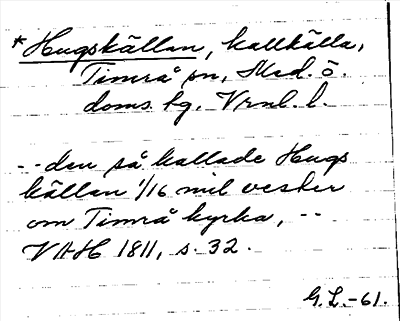 *Hugskällan, kallkälla,
Timrå sn, Med. ö.
doms. tg. Vrnl. l.
--den så kallade Hugs
källan 1/16 mil vester
om Timrå kyrka, --
VAH 1811, s. 32.
G.L.-61.